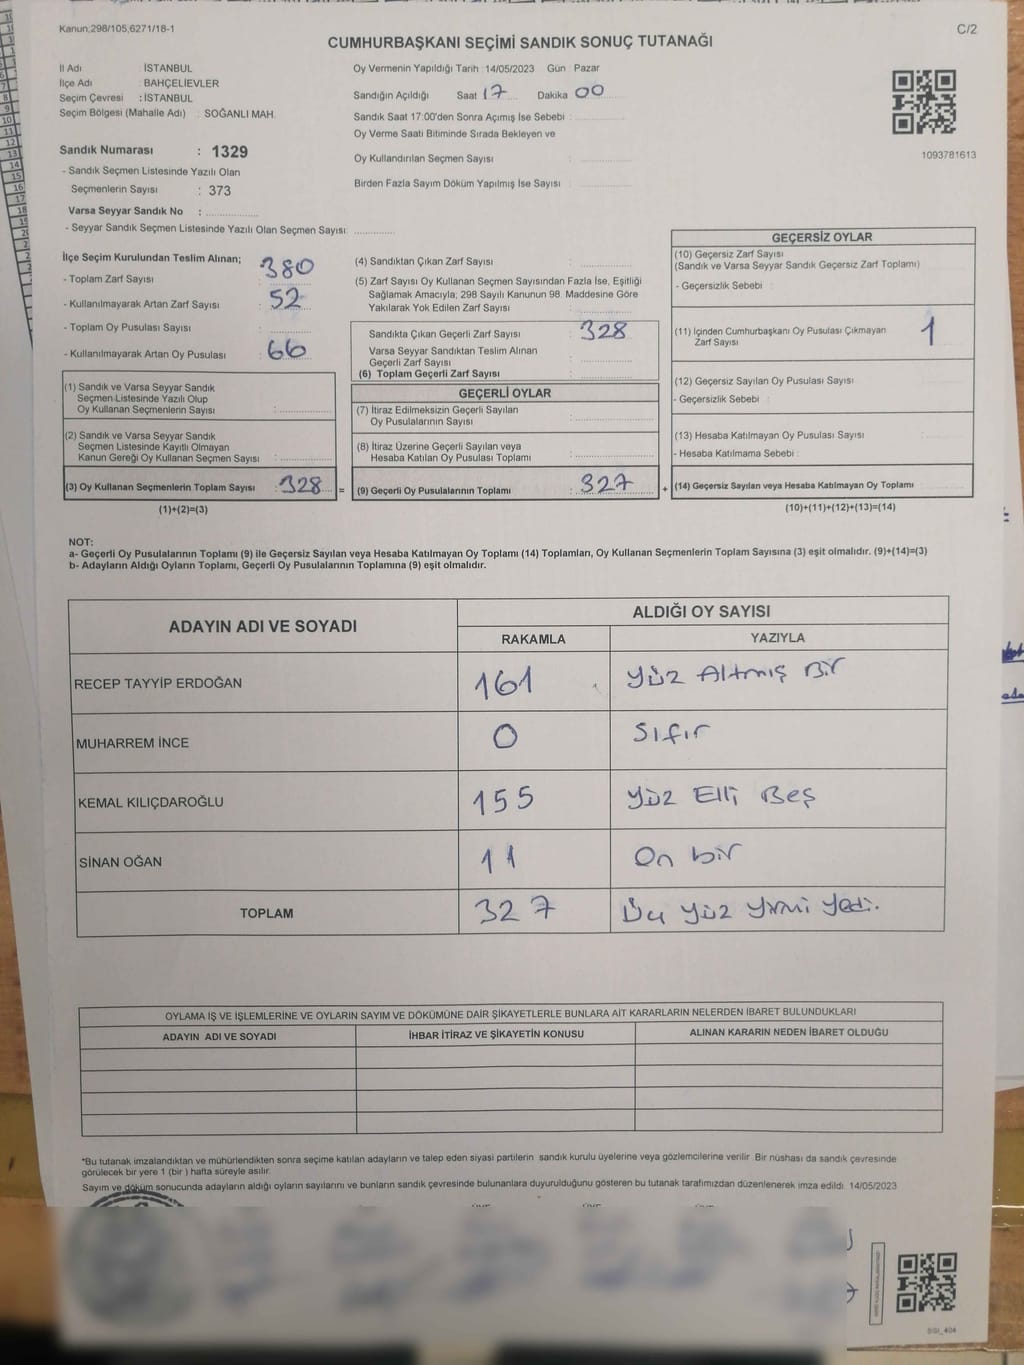 Kanun;298/105,6271/18-1
C/2
CUMHURBAŞKANI SEÇİMİ SANDIK SONUÇ TUTANAĞI
İl Adı : İSTANBUL
İlçe Adı : BAHÇELİEVLER
Seçim Çevresi : İSTANBUL
Seçim Bölgesi (Mahalle Adı) : SOĞANLI MAH.
Sandık Numarası : 1329
- Sandık Seçmen Listesinde Yazılı Olan
Seçmenlerin Sayısı : 373
Varsa Seyyar Sandık No :
- Seyyar Sandık Seçmen Listesinde Yazılı Olan Seçmen Sayısı:
Oy Vermenin Yapıldığı Tarih : 14/05/2023 Gün : Pazar
Sandığın Açıldığı Saat 17 Dakika 00
Sandık Saat 17:00'den Sonra Açımış İse Sebebi :
Oy Verme Saati Bitiminde Sırada Bekleyen ve
Oy Kullandırılan Seçmen Sayısı :
Birden Fazla Sayım Döküm Yapılmış İse Sayısı :
1093781613
İlçe Seçim Kurulundan Teslim Alınan;
- Toplam Zarf Sayısı : 380
- Kullanılmayarak Artan Zarf Sayısı : 52
- Toplam Oy Pusulası Sayısı :
- Kullanılmayarak Artan Oy Pusulası : 66
(1) Sandık ve Varsa Seyyar Sandık
Seçmen Listesinde Yazılı Olup
Oy Kullanan Seçmenlerin Sayısı :
(2) Sandık ve Varsa Seyyar Sandık
Seçmen Listesinde Kayıtlı Olmayan
Kanun Gereği Oy Kullanan Seçmen Sayısı :
(3) Oy Kullanan Seçmenlerin Toplam Sayısı : 328 =
(1)+(2)=(3)
(4) Sandıktan Çıkan Zarf Sayısı :
(5) Zarf Sayısı Oy Kullanan Seçmen Sayısından Fazla İse, Eşitliği
Sağlamak Amacıyla; 298 Sayılı Kanunun 98. Maddesine Göre
Yakılarak Yok Edilen Zarf Sayısı :
Sandıkta Çıkan Geçerli Zarf Sayısı : 328
Varsa Seyyar Sandıktan Teslim Alınan
Geçerli Zarf Sayısı :
(6) Toplam Geçerli Zarf Sayısı :
GEÇERLİ OYLAR
(7) İtiraz Edilmeksizin Geçerli Sayılan
Oy Pusulalarının Sayısı :
(8) İtiraz Üzerine Geçerli Sayılan veya
Hesaba Katılan Oy Pusulası Toplamı :
(9) Geçerli Oy Pusulalarının Toplamı : 327 +
GEÇERSİZ OYLAR
(10) Geçersiz Zarf Sayısı
(Sandık ve Varsa Seyyar Sandık Geçersiz Zarf Toplamı) :
- Geçersizlik Sebebi :
(11) İçinden Cumhurbaşkanı Oy Pusulası Çıkmayan
Zarf Sayısı : 1
(12) Geçersiz Sayılan Oy Pusulası Sayısı :
- Geçersizlik Sebebi :
(13) Hesaba Katılmayan Oy Pusulası Sayısı :
- Hesaba Katılmama Sebebi :
(14) Geçersiz Sayılan veya Hesaba Katılmayan Oy Toplamı :
(10)+(11)+(12)+(13)=(14)
NOT:
a- Geçerli Oy Pusulalarının Toplamı (9) ile Geçersiz Sayılan veya Hesaba Katılmayan Oy Toplamı (14) Toplamları, Oy Kullanan Seçmenlerin Toplam Sayısına (3) eşit olmalıdır. (9)+(14)=(3)
b- Adayların Aldığı Oyların Toplamı, Geçerli Oy Pusulalarının Toplamına (9) eşit olmalıdır.
ADAYIN ADI VE SOYADI
ALDIĞI OY SAYISI
RAKAMLA YAZIYLA
RECEP TAYYİP ERDOĞAN 161 Yüz Altmış Bir
MUHARREM İNCE 0 Sıfır
KEMAL KILIÇDAROĞLU 155 Yüz Elli Beş
SİNAN OĞAN 11 On bir
TOPLAM 327 Üç yüz yirmi yedi.
OYLAMA İŞ VE İŞLEMLERİNE VE OYLARIN SAYIM VE DÖKÜMÜNE DAİR ŞİKAYETLERLE BUNLARA AİT KARARLARIN NELERDEN İBARET BULUNDUKLARI
ADAYIN ADI VE SOYADI İHBAR İTİRAZ VE ŞİKAYETİN KONUSU ALINAN KARARIN NEDEN İBARET OLDUĞU
*Bu tutanak imzalandıktan ve mühürlendikten sonra seçime katılan adayların ve talep eden siyasi partilerin sandık kurulu üyelerine veya gözlemcilerine verilir. Bir nüshası da sandık çevresinde
görülecek bir yere 1 (bir) hafta süreyle asılır.
Sayım ve döküm sonucunda adayların aldığı oyların sayılarını ve bunların sandık çevresinde bulunanlara duyurulduğunu gösteren bu tutanak tarafımızdan düzenlenerek imza edildi. 14/05/2023